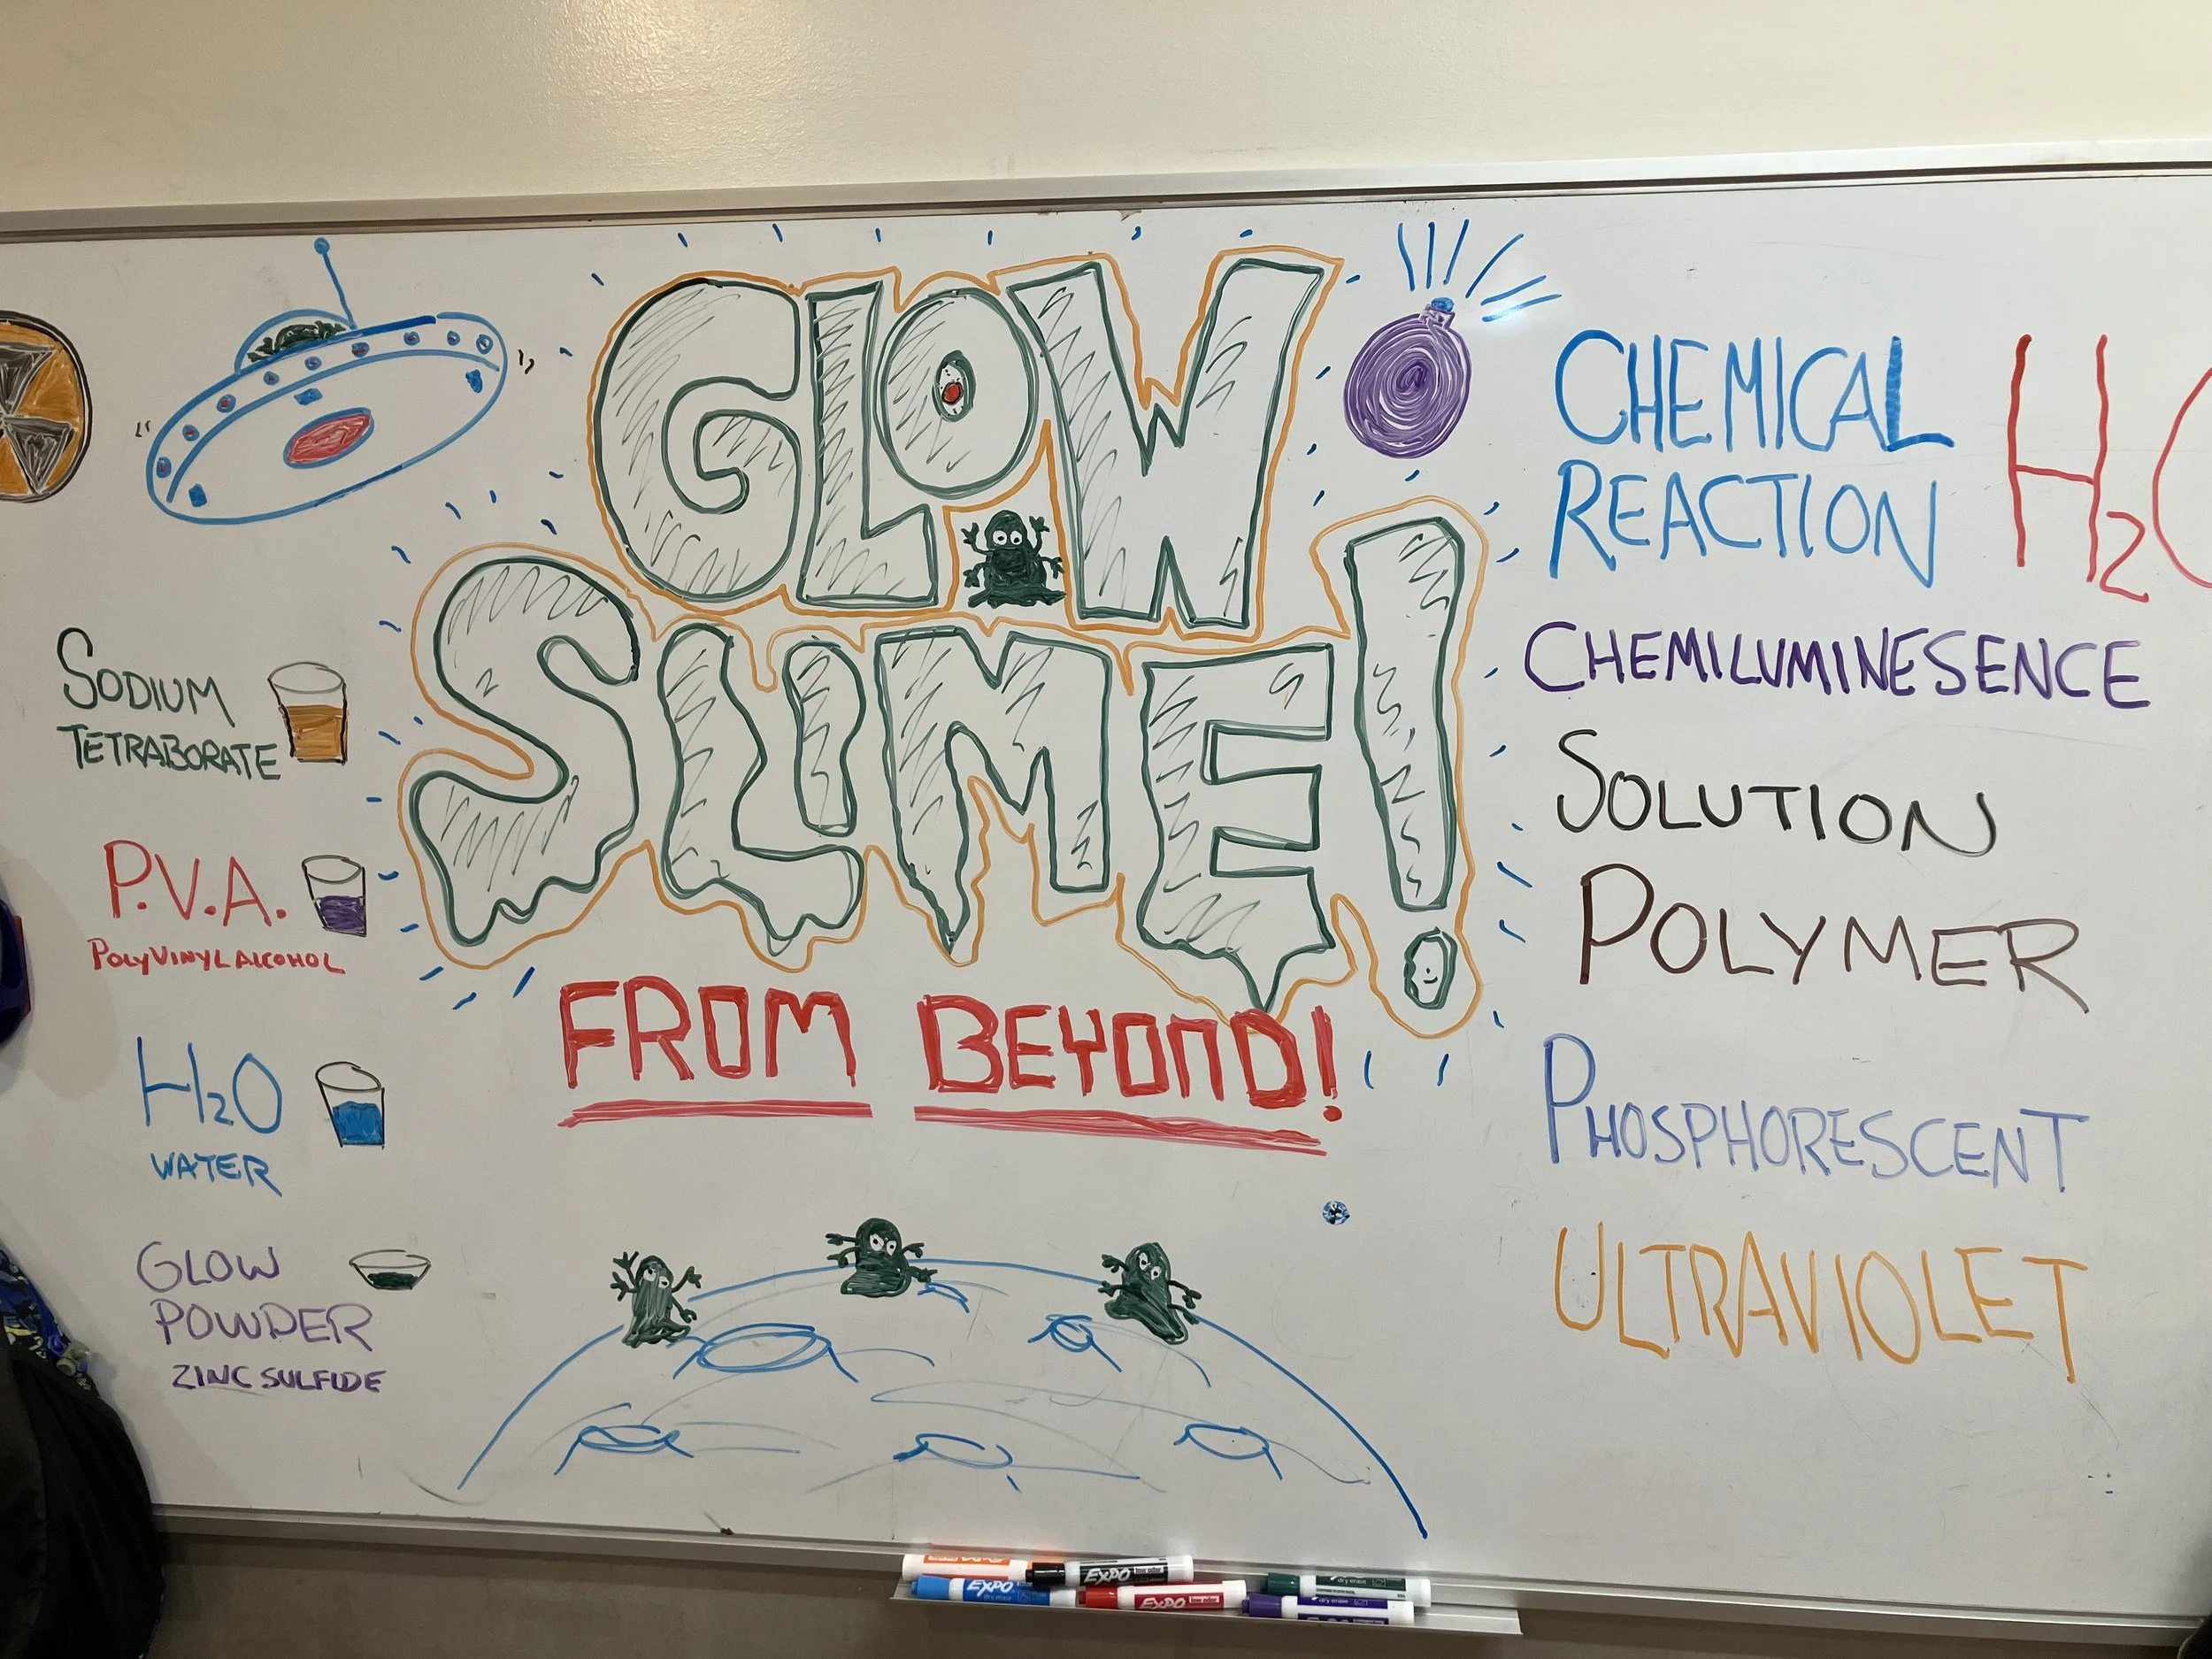 GLOW
SLIME!
FROM BEYOND!
SODIUM
TETRABORATE
P.V.A.
POLYVINYL ALCOHOL
H2O
WATER
GLOW
POWDER
ZINC SULFIDE
CHEMICAL
REACTION
H2O
CHEMILUMINESENCE
SOLUTION
POLYMER
PHOSPHORESCENT
ULTRAVIOLET
EXPO
EXPO
dry erase
EXPO
dry erase
dry erase